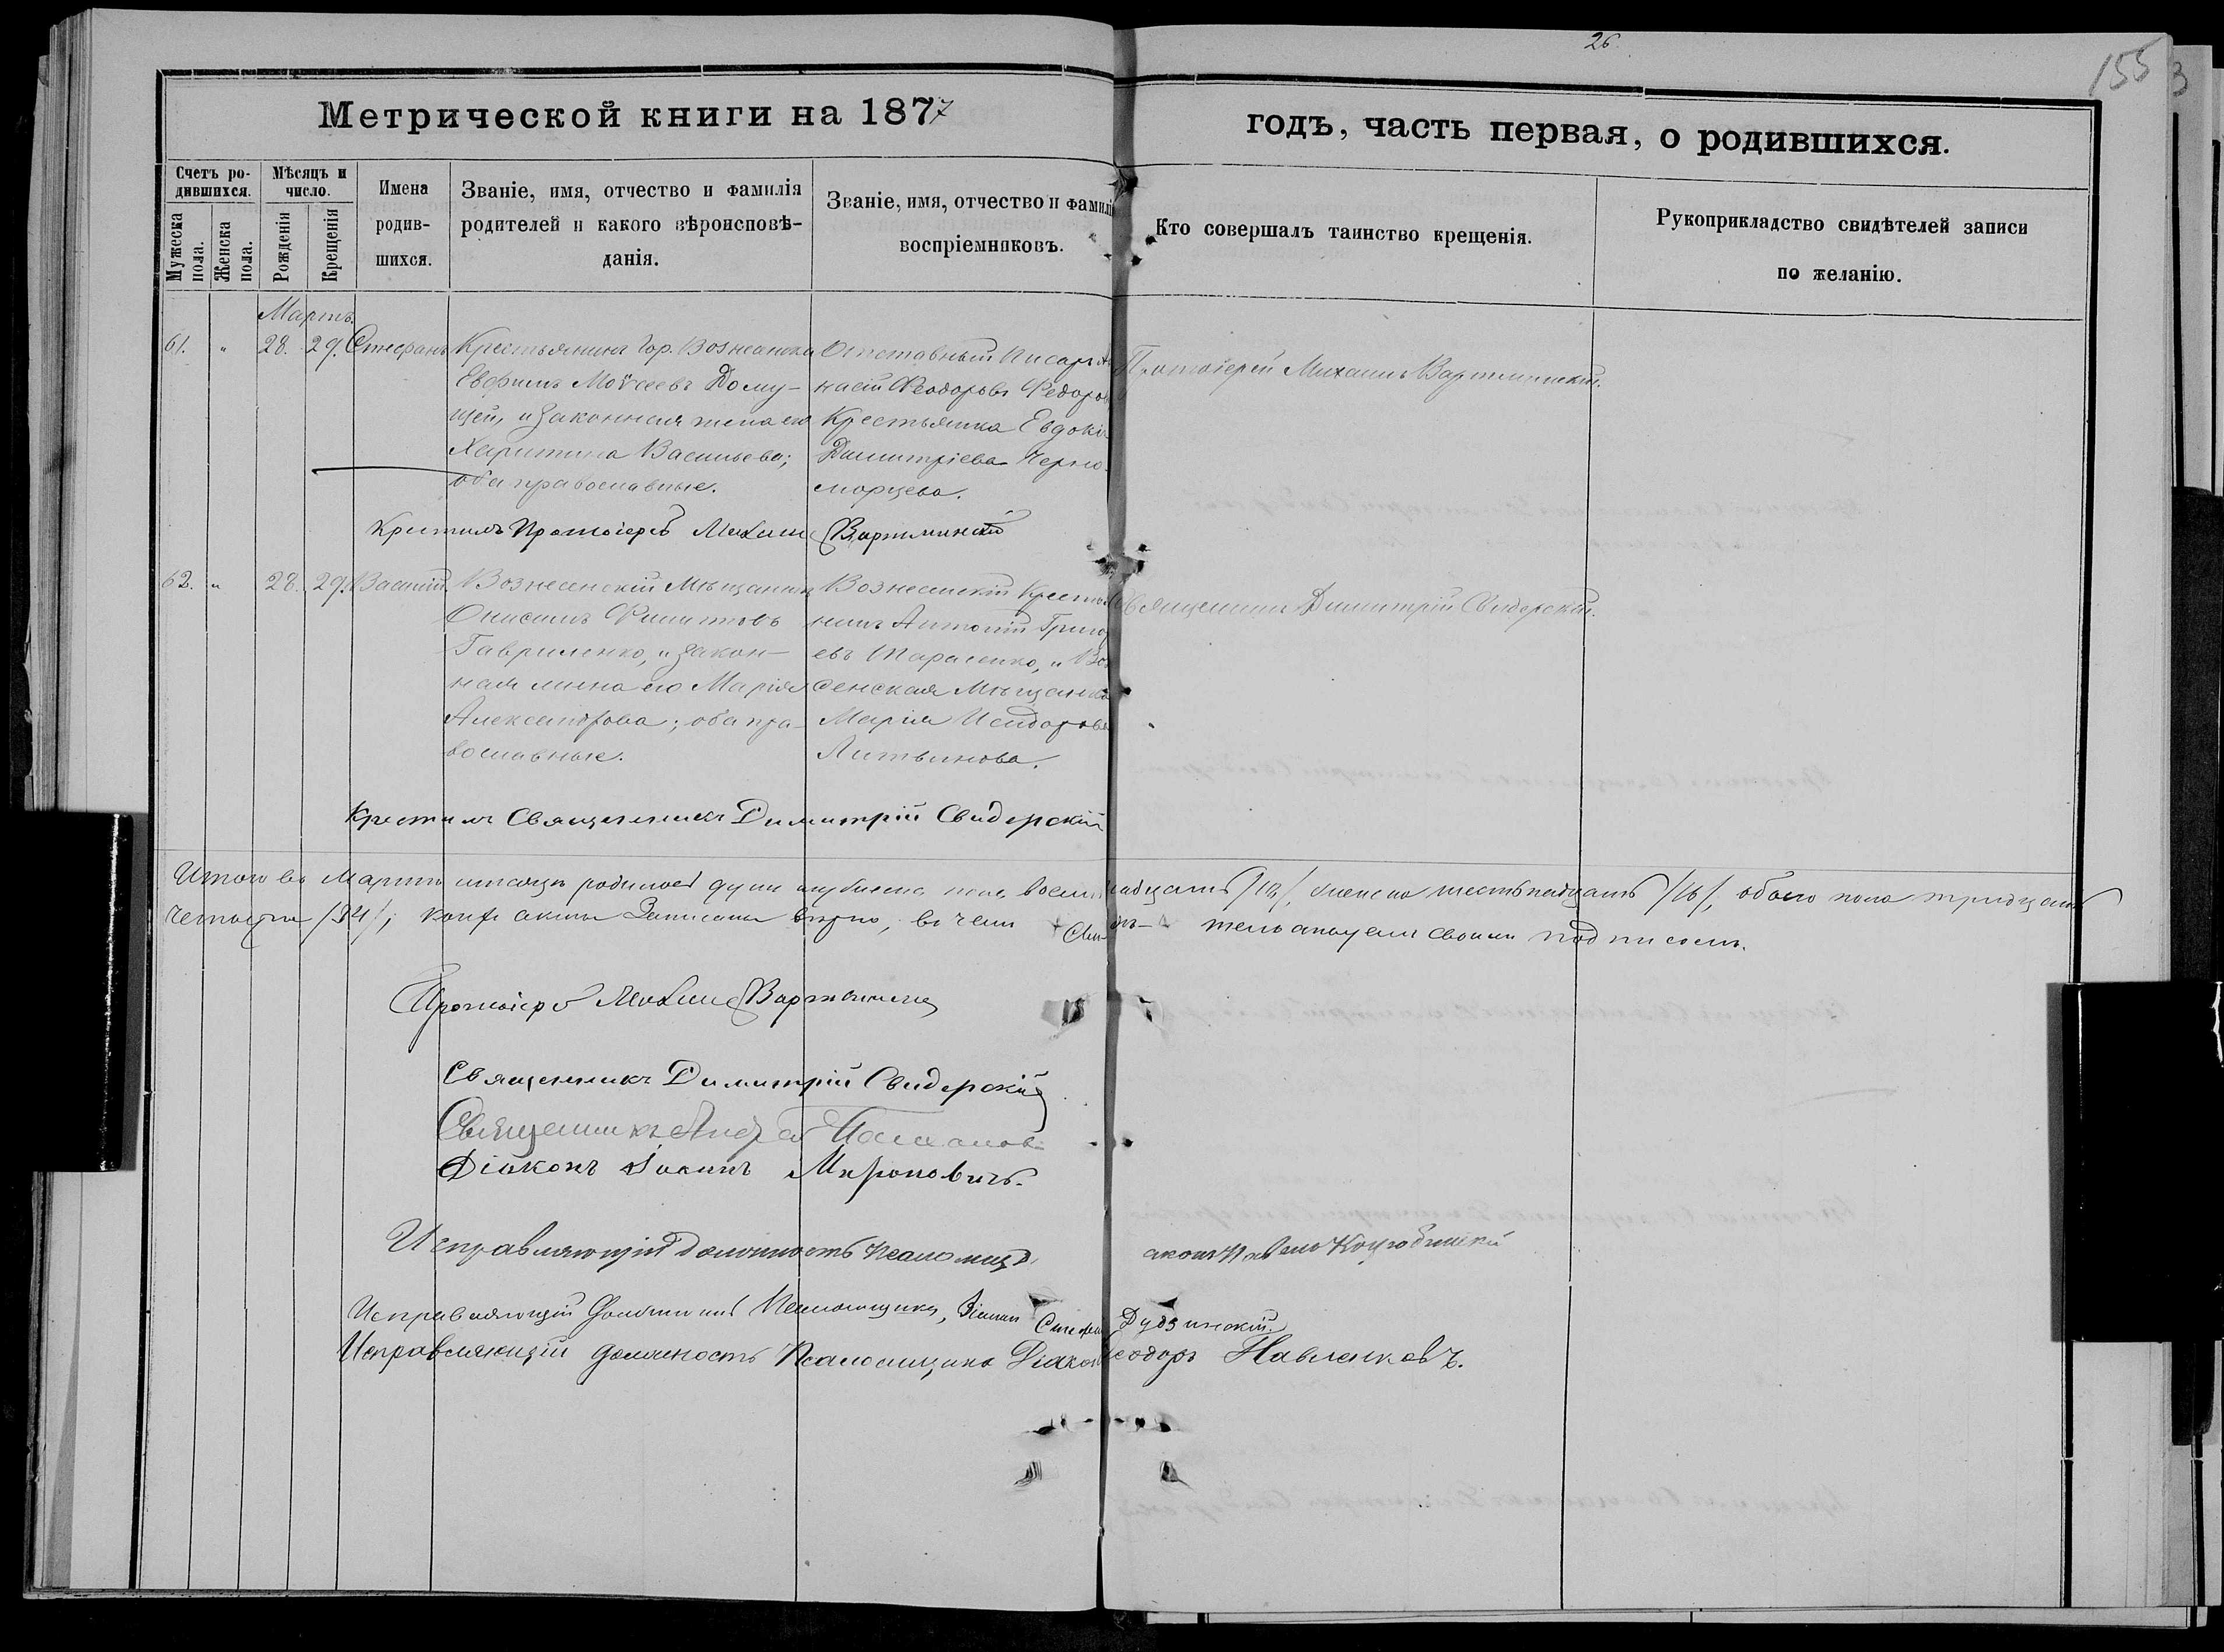 26.
155
3
Метрической книги на 1877
годъ, часть первая, о родившихся.
Счетъ ро-
дившихся.
Мужеска
пола.
Женска
пола.
Мѣсяцъ и
число.
Рожденія
Крещенія
Имена
родив-
шихся.
Званіе, имя, отчество и фамилія
родителей и какого вѣроисповѣ-
данія.
Званіе, имя, отчество и фамилі
воспріемниковъ.
Кто совершалъ таинство крещенія.
Рукоприкладство свидѣтелей записи
по желанію.
Мартъ.
61. " 28. 29. Стефанъ
Крестьянинъ Гор. Вознесенска
Евфимъ Моѵсеевъ Дому-
щей, и законная жена его
Харитина Васильева;
оба православные.
Отставный Писарь
насій Ѳеодоровъ Федоров
Крестьянка Евдокія
Димитріева Черно-
морцева.
Протоіерей Михаилъ Вартминскій.
Крестилъ Протоіерей Михаилъ Вартминскій
62. " 28. 29. Василій
Вознесенскій Мѣщанинъ
Онисимъ Филиповъ
Гавриленко, и закон-
ная жена его Марія
Александрова; оба пра-
вославные.
Вознесенскій Крестья
нинъ Антоній Григор
евъ Тарасенко, и Воз
сенская Мѣщанка
Марія Исидорова
Литвинова.
Священникъ Димитрій Свидерскій.
Крестилъ Священникъ Димитрій Свидерскій
Итого въ Мартѣ мѣсяцѣ родилось душъ мужеска пола восемнадцать /18/, женска шестьнадцать /16/, обоего пола тридцать
четыре /34/; акты записаны вѣрно, въ чемъ свидѣ- тельствуемъ своимъ подписомъ.
Протоіерей Михаилъ Вартминскій
Священникъ Димитрій Свидерскій
Священникъ Андрей
Діаконъ Іоаннъ Мироновичъ.
Исправляющій должность псаломщ. Павелъ Коцюбинскій
Исправляющій должность Псаломщика, Діаконъ Стефанъ Дудзинскій.
Исправляющій должность Псаломщика Діаконъ Ѳеодоръ Навленковъ.